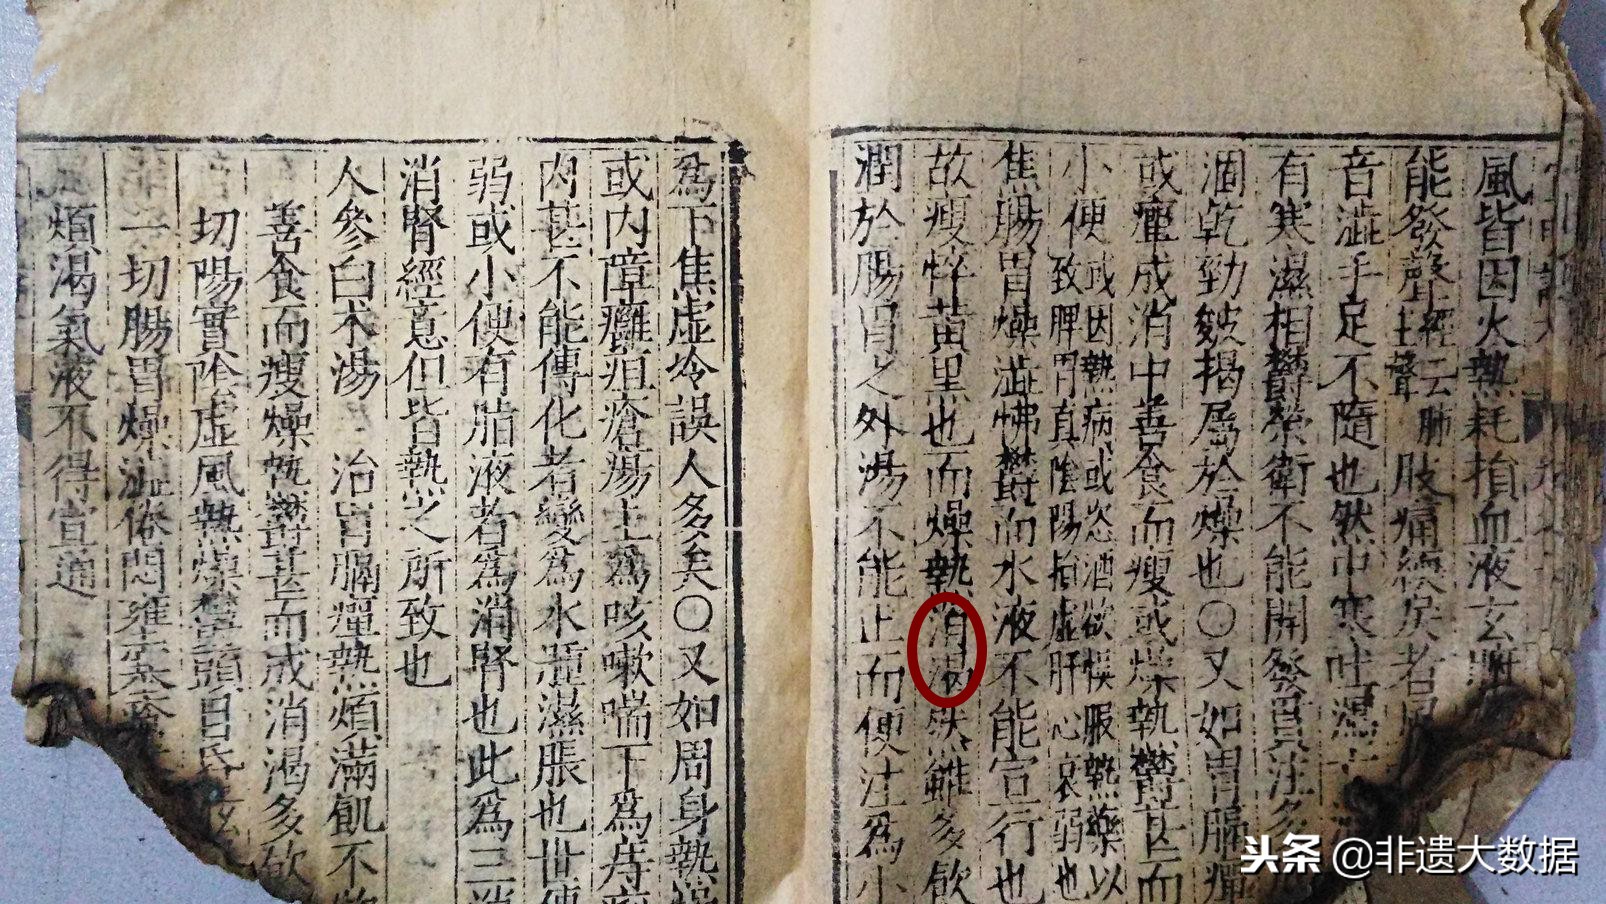 風皆因火熱耗損血液玄
能發聲經云肺主聲肢痛緛戾者風
音澁手足不隨也然中寒吐瀉
有寒濕相鬱榮衛不能開發貫注多
涸乾勁皴揭屬於燥也○又如胃膈癉
或癉成消中善食而瘦或燥熱鬱甚而
小便或因熱病或恣酒欲悮服熱藥以
致脾胃真陰陽損虛肝心衰弱也
焦腸胃燥澁怫鬱而水液不能宣行也
故瘦悴黃黑也而燥熱消渴然雖多飲
潤於腸胃之外湯不能止而便注為小
為下焦虛冷誤人多矣○又如周身熱燥
或內障癰疽瘡瘍上為咳嗽喘下為痔
內甚不能傳化者變為水腫濕脹也世傳
弱或小便有脂液者為消腎也此為三消
消腎經意但皆熱之所致也
人參白术湯 治胃膈癉熱煩滿飢不
善食而瘦燥熱鬱甚而成消渴多飲
切陽實陰虛風熱燥鬱頭目昏眩
一切腸胃燥澁倦悶壅
煩渴氣液不得宣通
头条 @非遗大数据